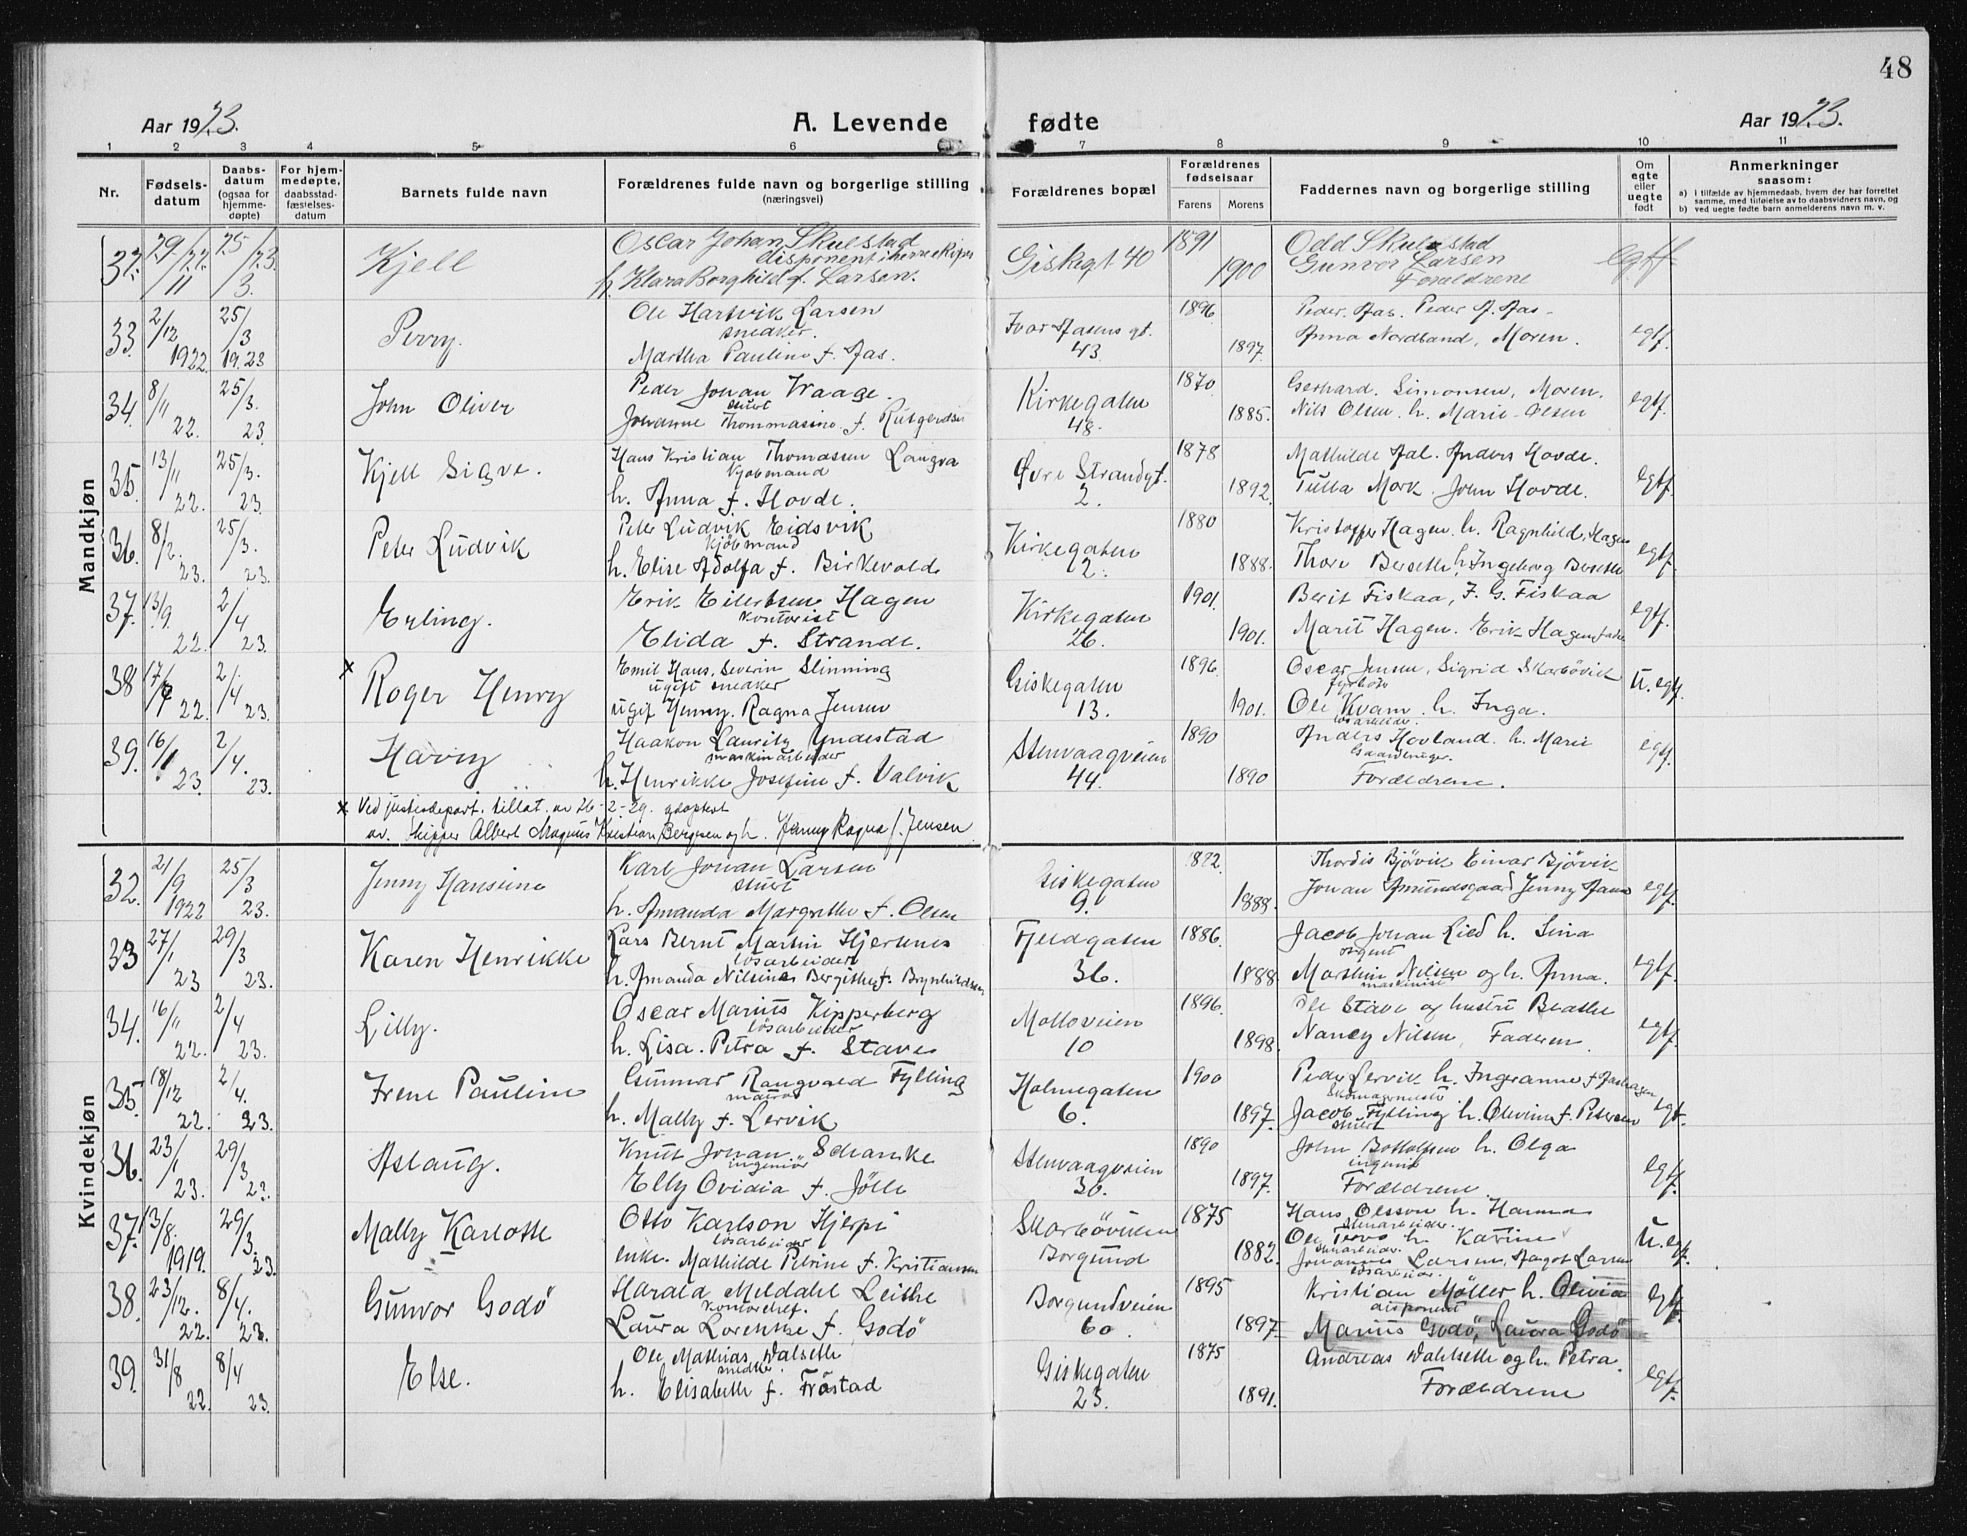 48
Aar 1923.
A. Levende fødte
Aar 1923.
1 2 3 4 5 6 7 8 9 10 11
Nr.
Fødsels-
datum
Daabs-
datum
(ogsaa for
hjemme-
døpte)
For hjem-
medøpte,
daabsstad-
fæstelses-
datum
Barnets fulde navn
Forældrenes fulde navn og borgerlige stilling
(næringsvei)
Forældrenes bopæl
Forældrenes
fødselsaar
Farens
Morens
Faddernes navn og borgerlige stilling
Om
egte
eller
uegte
født
Anmerkninger
saasom:
a) I tilfælde av hjemmedaab, hvem der har forrettet
samme, med tilføielse av to daabsvidners navn, og
b) ved uegte fødte barn anmelderens navn m. v.
Mandkjøn
32. 29/11 22. 25/3. 23. Kjell
Oscar Johan Skulstad
disponent
h. Klara Borghild f. Larsen.
Giskegt 40
1891
1900
Odd Skulstad
Gunvor Larsen
Foreldrene
egtf.
33. 2/12 1922. 25/3 1923
Perry.
Ole Hartvik Larsen
snedker.
Martha Pauline f. Aas.
Ivar Aasens gt.
43
1896
1897.
Peder Aas. Peder A. Aas
Anna Nordland, Moren.
egtf.
34. 8/11 22. 25/3. 23.
John Oliver
Peder Johan Waage.
stuert
Johanne Thommasine f.
Kirkegaten
48.
1870
1885.
Gerhard Simonsen, Moren.
Nils Olsen h. Marie Olsen
egtf.
35. 13/11 22. 25/3. 23.
Kjell Sigve.
Hans Kristian Thomassen Langva
kjøbmand
h. Anna f. Hovde.
Øvre Strandgt.
2.
1878
1892.
Mathilde Aal. Anders Hovde.
Tulla Mork. John Hovde.
egtf.
36. 8/2. 23. 25/3. 23.
Peter Ludvik
Peter Ludvik Eidsvik
kjøbmand
h. Elise Adolfa f. Birkevold
Kirkegaten
2.
1880
1888.
Kristoffer Hagen h. Ragnhild Hagen
Thore Berseth h. Ingeborg Berseth
egtf.
37. 13/9. 22. 2/4 23.
Erling.
Erik Eilertsen Hagen
kontorist
Elida f. Strande.
Kirkegaten
26.
1901.
1901.
Berit Fiskaa, J. G. Fiskaa
Marit Hagen. Erik Hagen fader
egtf.
38 17/7 22. 2/4 23.
x Roger Henry
Emil Hans Severin Slinning
ugift snedker
ugift Henny Ragna Jensen
Giskegaten
13.
1896
1901.
Oscar Jensen, Sigrid Skarbövik
fyrböter
Ole Kvam h. Inga.
løsarbeider
U. egtf.
39. 16/1 23. 2/4. 23.
Harry
Haakon Lauritz Yndestad
maskinarbeider
h. Henrikke Josefine f. Valvik
Stenvaagveien
44.
1890
1890
Anders Hovland h. Marie
Forældrene.
egtf.
x Ved justisdepart. tillat. av 26-2-29. adoptert
av. skipper Albert Magnus Kristian Bergesen og h. Henny Ragna f. Jensen
Kvindekjøn
32. 21/9 1922 25/3 23.
Jenny Hansine
Karl Johan Larsen
stuert
h. Amanda Margrethe f. Olsen
Giskegaten
9.
1882.
1888.
Thordis Bjørvik Einar Bjørvik
Johan Amundsgaard Jenny
egtf.
33 27/1 23 29/3 23.
Karen Henrikke
Lars Bernt Martin Hjertnes
løsarbeider
h. Amanda Nilsine Bergithe f. Brynhildsen
Fjeldgaten
36.
1886.
1888.
Jacob Johan Lied h. Sina
agent
Martin Nilsen og h. Anna.
maskinist
egtf.
34. 16/11 22. 2/4 23.
Lilly.
Oscar Marius Kipperberg
løsarbeider
h. Lisa Petra f. Stave
Molloveien
10
1896.
1898.
Ole Stave og hustru Beathe
Nancy Nilsen, Faderen.
egtf.
35. 18/12 22. 2/4. 23.
Irene Pauline
Gunnar Rangvald Fylling
matros
h. Mally f. Lervik
Holmegaten
6.
1900
1897.
Peder Lervik h. Ingeranne f. Aashagen
Skomagermester
Jacob Fylling h. Olevine f. Petersen
stuert
egtf.
36. 23/1 23. 29/3 23.
Aslaug.
Knut Johan Schanke
ingeniør
Elly Ovidia f. Jölle
Stenvaagveien
36.
1890
1897.
John Bottolfsen h. Olga
ingeniør
Forældrene
egtf.
37. 13/8. 1919. 29/3. 23.
Mally Karlotte
Otto Karlson Hjerpi
løsarbeider
enke. Mathilde Petrine f. Kristiansen
Skarbövikken
Borgund
1875
1882.
Hans Olsson h. Hanna
Stenarbeider.
Ole h. Karine
Stenarbeider.
Johannes Larsen, Aagot Larsen
løsarbeider.
U. egtf.
38. 23/12. 22. 8/4. 23.
Gunvor Godö
Harald Meldahl Leithe
kontorchef.
Laura Lorentse f. Godö
Borgundveien
60.
1895
1897
Kristian Møller h. Olivia
disponent
Marius Godö, Laura Godö
egtf.
39. 31/8 22. 8/4 23.
Else.
Ole Mathias Walseth
snedker
h. Elisabeth f. Fröstad
Giskegaten
23.
1875
1891.
Andreas Walseth og h. Petra.
Forældrene
egtf.